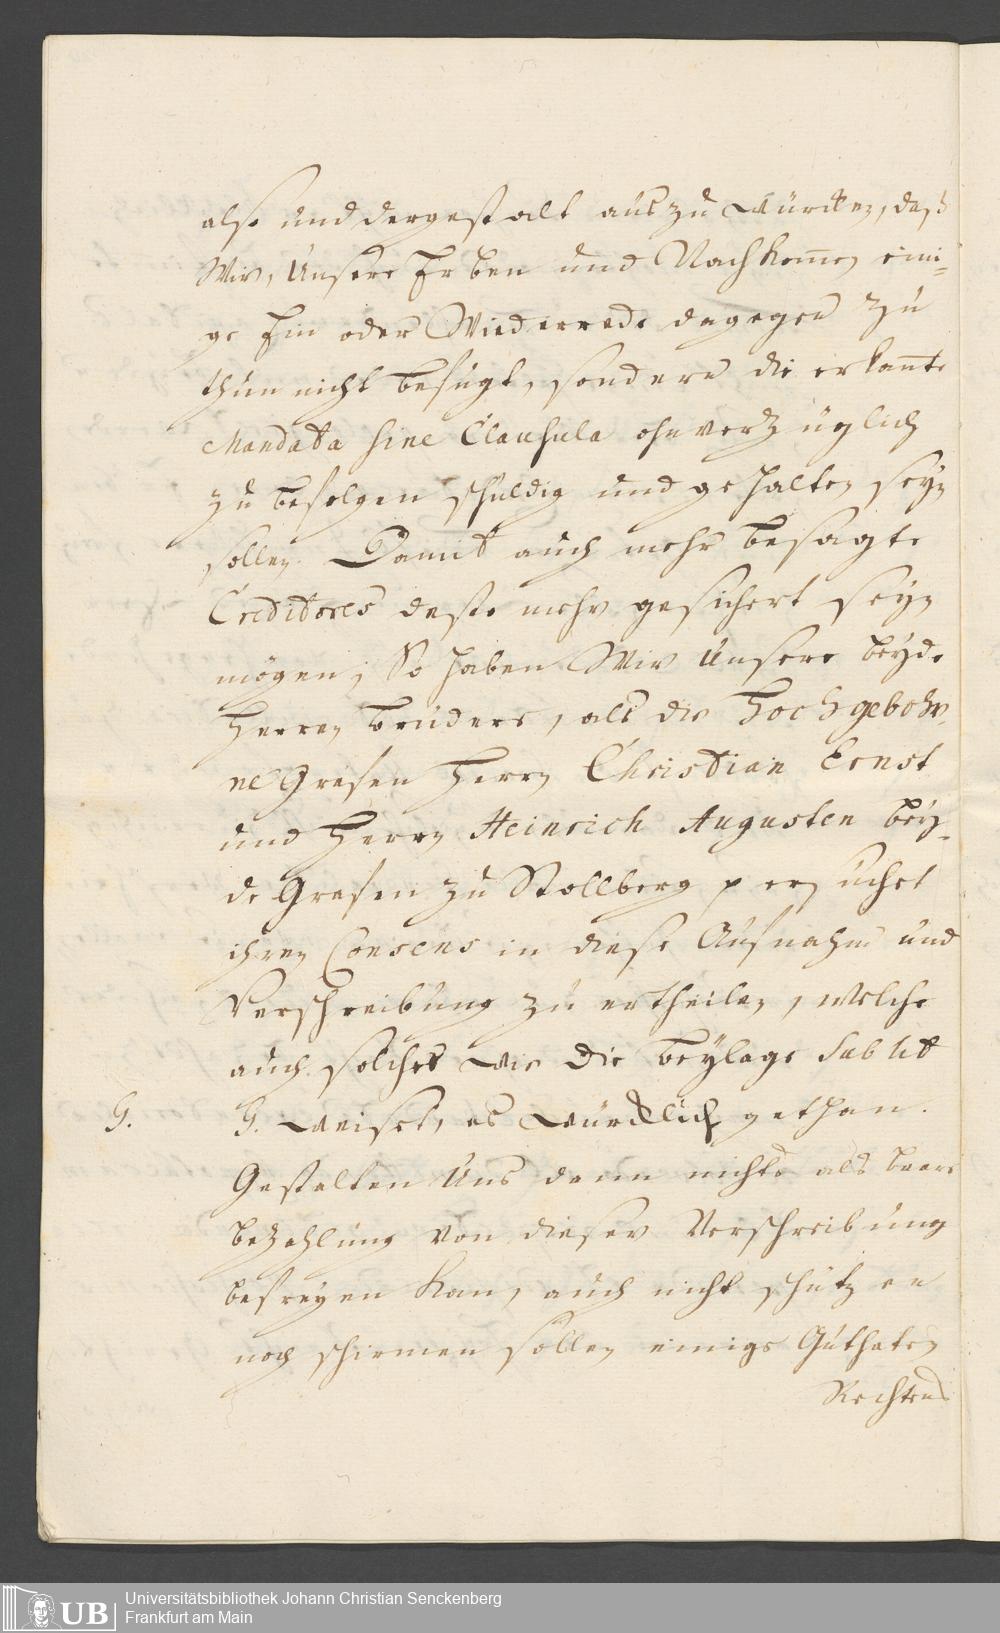 also und dergestalt auszuwürcken, daß
Wir, Unsere Erben und Nachkom̅en eini=
ge Ein oder Wiederrede dagegen zu
thun nicht befugt, sondern die erkan̅te
Mandata sine Clausula ohnverzüglich
zu befolgen schuldig und gehalten seyn
sollen. Damit auch mehr besagte
Creditores desto mehr gesichert seyn
mögen, So haben Wir Unsere beyde
Herren Brüdere, als die Hochgebohr=
ne Grafen Herrn Christian Ernst
und Herrn Heinrich Augusten bey=
de Grafen zu Stollberg p ersuchet
ihren Consens in diese Aufnahm und
Verschreibung zu ertheilen, welche
auch solches wie die Beylage sub lit
G. G. weiset, es würcklich gethan.
Gestalten Uns dann nichts als baare
bezahlung von dieser Verschreibung
befreyen kan, auch nicht schützen
noch schirmen sollen einige Guthaten
Rechtens
UB Universitätsbibliothek Johann Christian Senckenberg
Frankfurt am Main